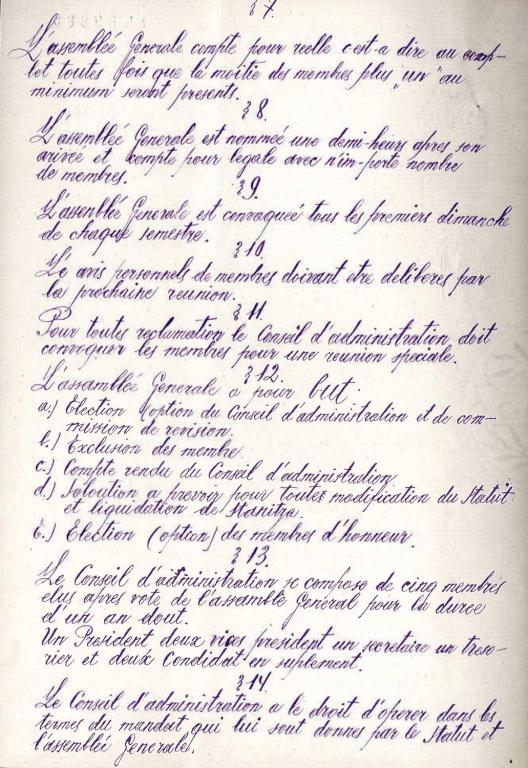 § 7.
L'assemblée Generale compte pour reelle c'est-a dire au comp-
let toutes fois que la moitie des membres plus "un" au
minimum seront presents.
§ 8.
L'assemblée Generale est nommeé une demi-heurs apres son
arivee et compte pour legale avec n'im-porte nombre
de membres.
§ 9.
L'assenblée Generale est convoqueé tous les premiers dimanche
de chaque semestre.
§ 10.
Le avis personnels de membres doivant etre deliberes par
la prochaine reunion.
§ 11.
Pour toutes reclamation le Conseil d'administration doit
convoquer les membres pour une reunion speciale.
§ 12.
L'assamblée Generale a pour but.
a.) Election (option du Conseil d'administration et de com-
mission de revision.
b.) Exclusion des membre.
c.) Compte rendu du Conseil d'administration
d.) Soloution a prevoir pour toutes modification du Statut
et liquidation de Stanitza.
E.) Election (option) des membres d'honneur.
§ 13.
Le Conseil d'administration se compose de cinq membres
elus apres vote de l'assamble General pour la duree
d'un an dout.
Un President deux vices president un secretaire un treso-
rier et deux Candidat en suplement.
§ 14.
Le Conseil d'administration a le droit d'operer dans les
termes du mandat qui lui sout donnes par le Statut et
l'assemblée Generale.